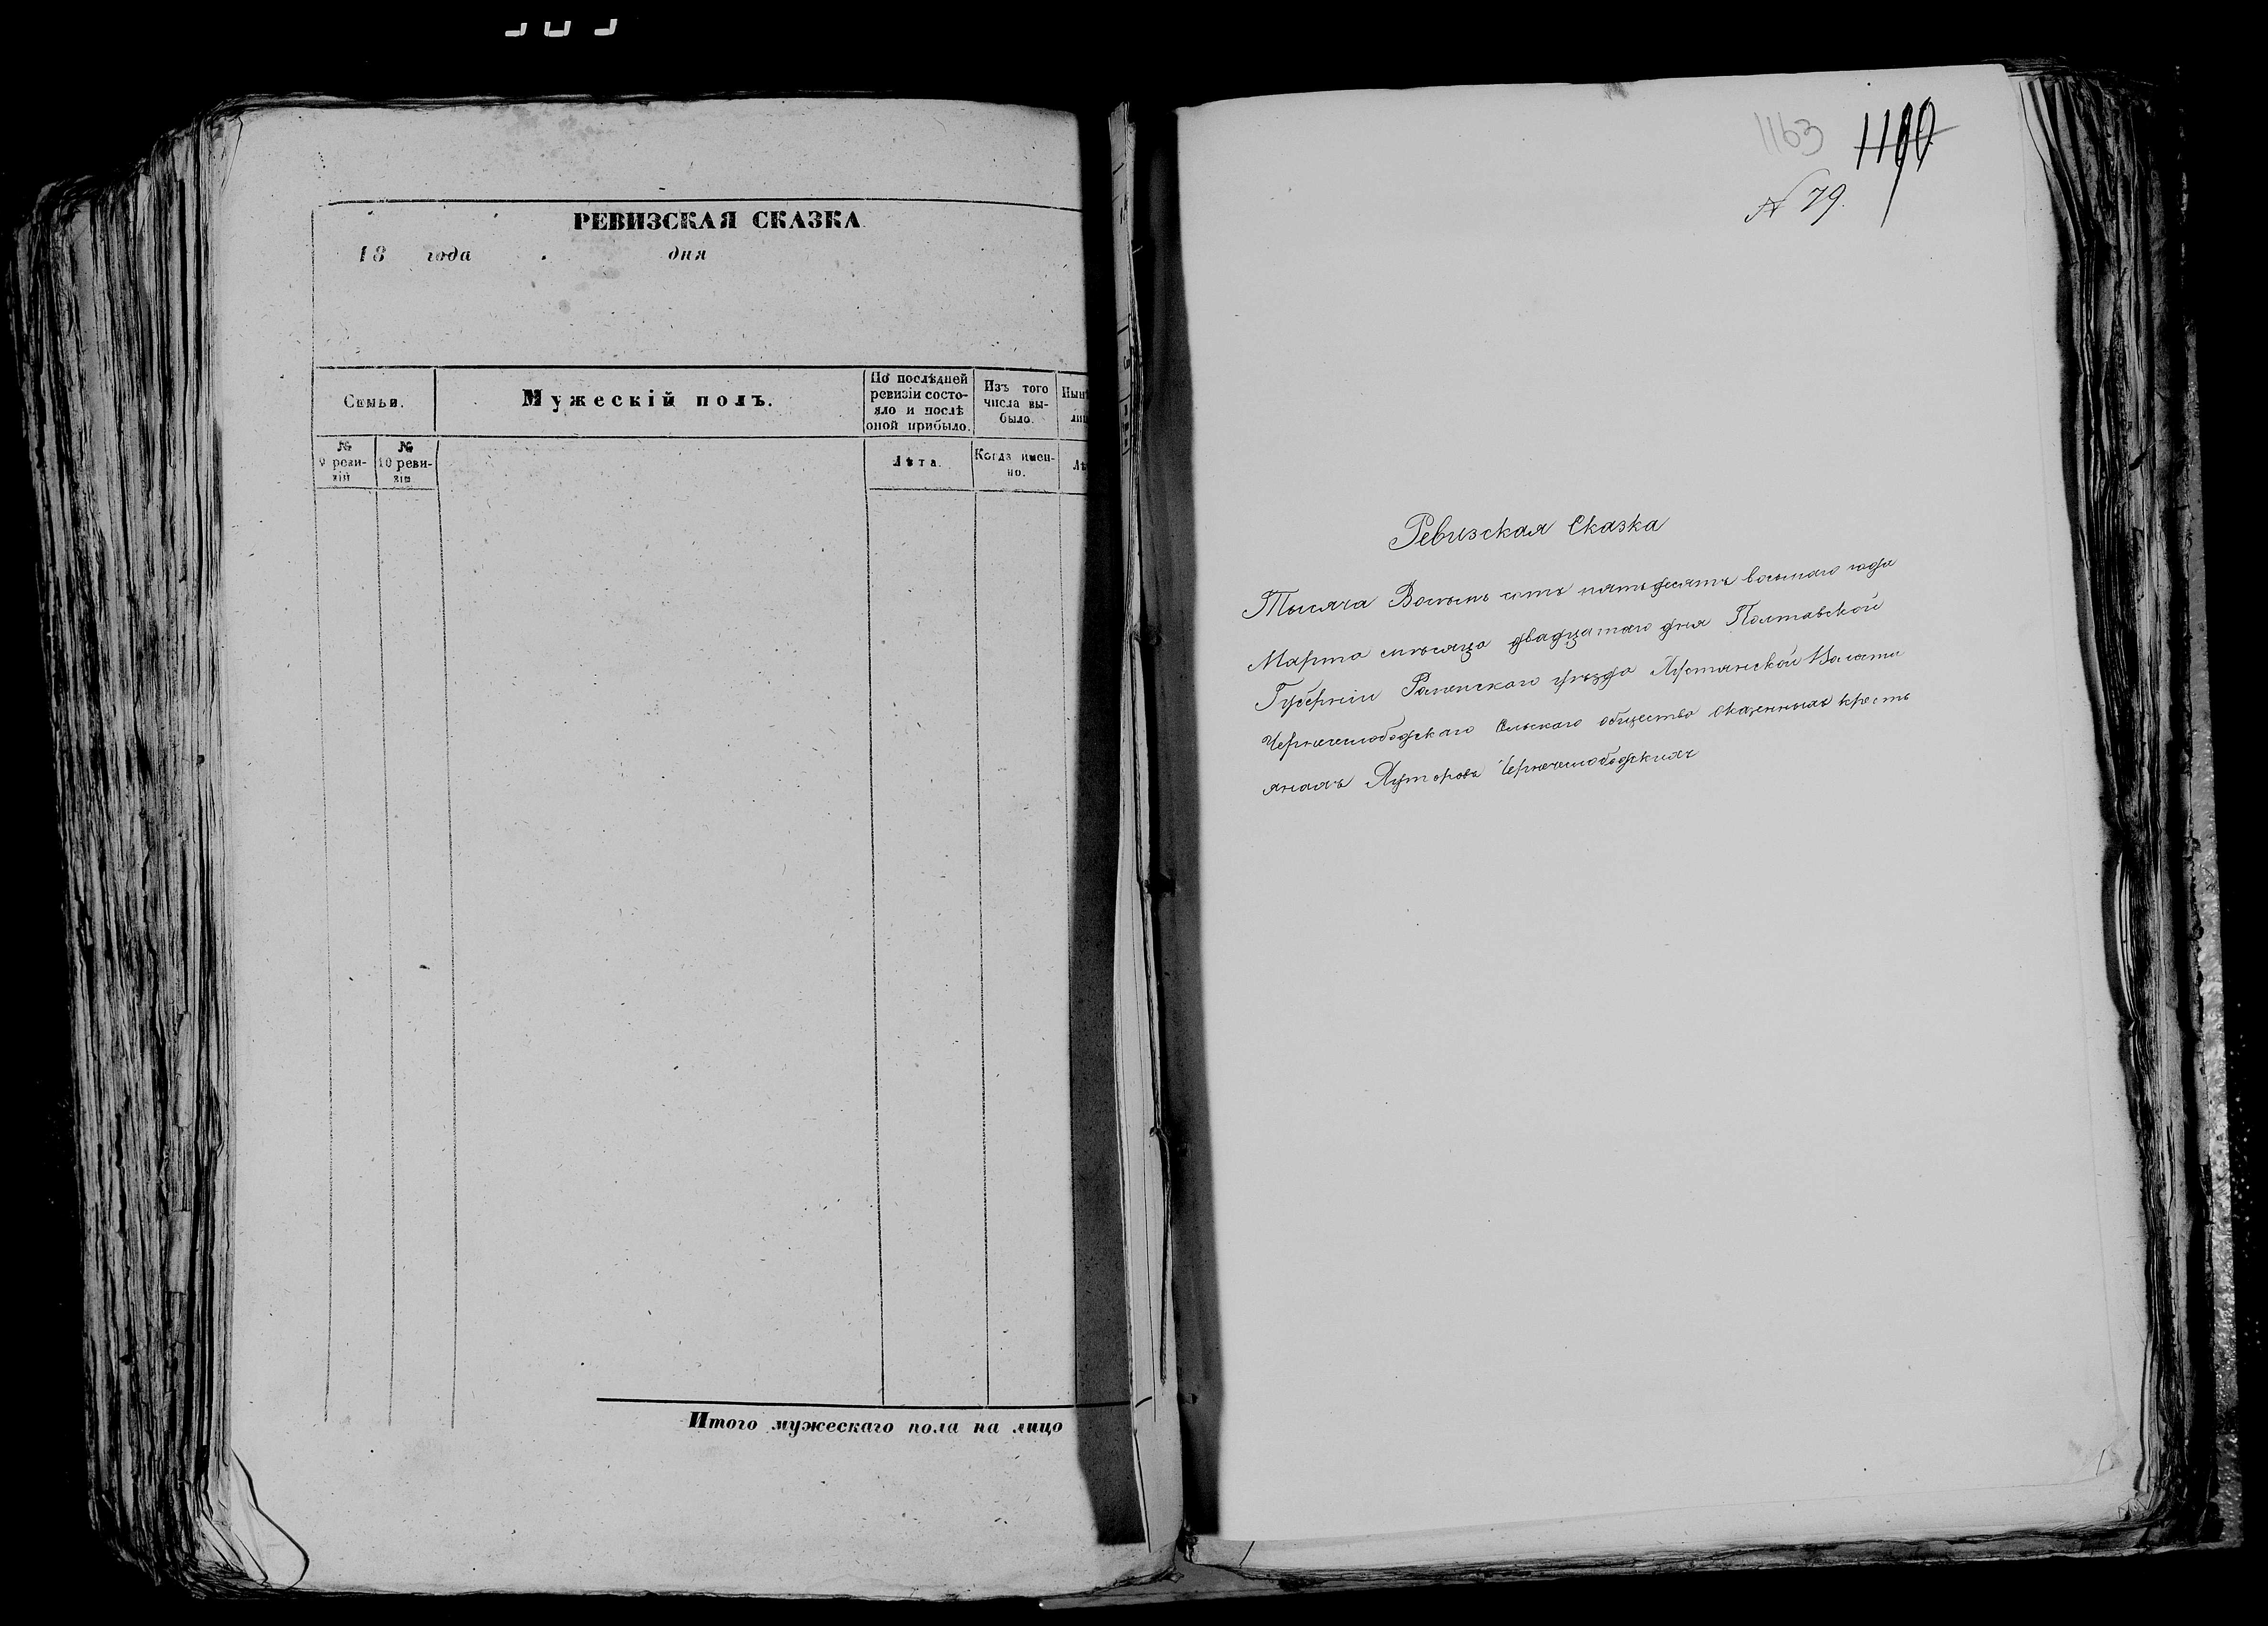 РЕВИЗСКАЯ СКАЗКА
18 года дня
Семьи.
Мужескій полъ.
По послѣдней
ревизіи состо-
яло и послѣ
оной прибыло.
Изъ того
числа вы-
было.
№
9 реви-
зіи
№
10 реви-
зіи
Лѣта.
Когда имен-
но.
Итого мужескаго пола на лицо
1163
№ 79.
Ревизская Сказка
Тысяча Восемь сотъ пятьдесятъ восьмаго года
Марта мѣсяца двадцатаго дня Полтавской
Губерніи Роменскаго уѣзда Хустянской Волости
Чернечеслободскаго Сельскаго общества о казенныхъ кресть
янахъ Хуторовъ Чернечеслободскихъ